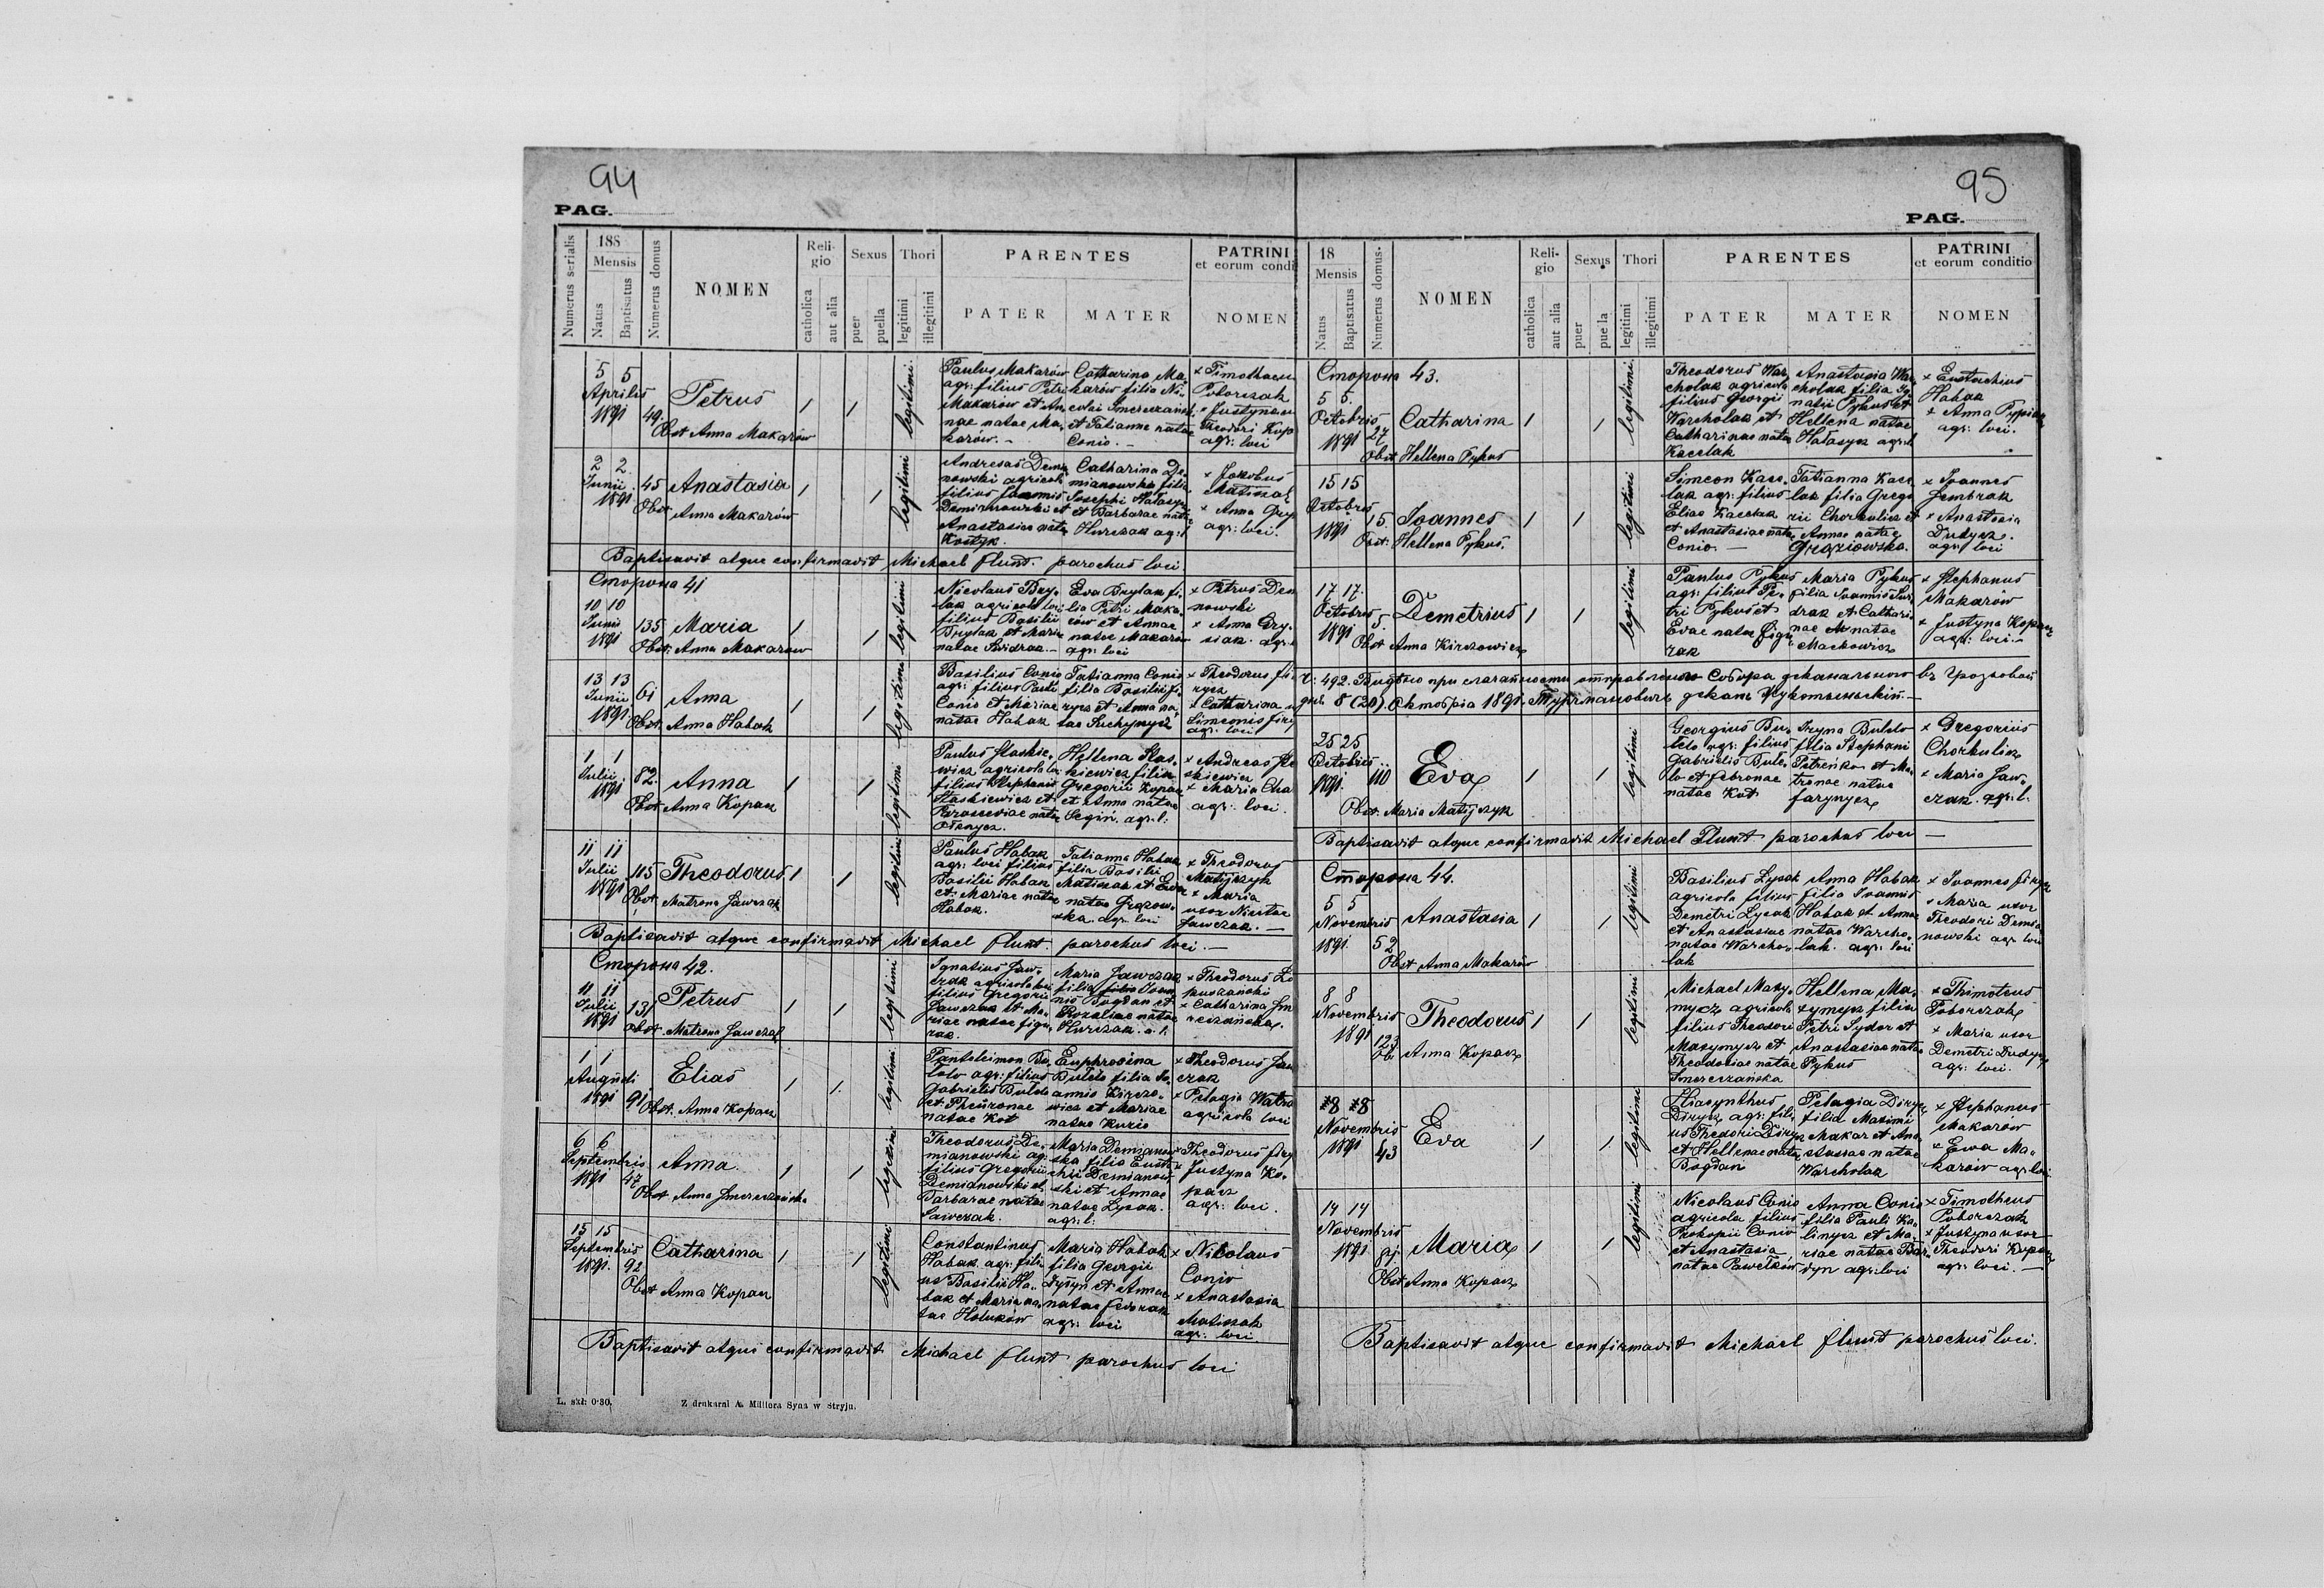 94
PAG.
Numerus serialis
188
Mensis
Natus
Baptisatus
Numerus domus
NOMEN
Religio
catholica
aut alia
Sexus
puer
puella
Thori
legitimi
illegitimi
PARENTES
PATER
MATER
PATRINI
et eorum condi
NOMEN
5 5
Aprilis
1891
49.
Petrus
Obst Anna Makarów
legitimi
Paulus Makarów
agr: filius Petri
Makarów et An
nae natae Ma
karów. -
Catharina Ma
karów filia Ni
colai Smereczańsk
et Tatianne natae
Conio. -
x Timothaeu
Poborczak
x Justyna u
Theodori Kop
agr: loci
2 2
Junii
1891
45
Anastasia
Obst. Anna Makarów
legitimi
Andreas Demia
nowski agricola
filius Joannis
Demianowski et
Anastasiae nata
Kostyk.
Catharina De
mianowska filia
Josephi Hałasycz
et Barbarae natae
Hurczak ag: l
x Jakobus
Matiszak
x Anna Gry
agr: loci.
Baptisavit atque confirmavit Michael Flunt. parochus loci
Сторона 41
10 10
Junii
1891
135
Maria
Obst: Anna Makarow
legitimi
Nicolaus Bry
lak agricola loci
filius Basilii
Brylak et Mariae
natae Swidrak. -
Eva Brylak fi
lia Petri Maka
rów et Annae
natae Makarow
agr: loci
x Petrus Dem
nowski
x Anna Gry
siak. agr: l
13 13
Junii
1891
61
Anna
Obst. Anna Habak
legitimi
Basilius Conio
agr: filius Pauli
Conio et Mariae
natae Habak
Tatianna Conio
filia Basilii Fi
rycz et Anna na
tae Suchynycz
x Theodorus Fi
rycz
x Catharina u
Simeonis Firy
agr: loci
1 1
Julii
1891
82.
Anna
Obst Anna Kopacz
legitimi
Paulus Staskie
wicz agricola lo
filius Stephani
Staskiewicz et
Parasceviae nata
Ołenycz.
Hellena Stas
kiewicz filia
Gregorii Kopacz
et Anna natae
Segin. agr. l:
x Andreas Sta
skiewicz
x Maria Cha
agr: loci.
11 11
Julii
1891
115
Theodorus
Obst. Matrona Jawczak
legitimi
Paulus Habak
agr: loci filius
Basilii Habak
et Mariae natae
Habak.
Tatianna Habak
filia Basilii
Matiszak et Eva
natae Grozow
ska. agr: loci
x Theodorus
Matijczyk
x Maria
uxor Nicetae
Jawczak. -
Baptisavit atque confirmavit Michael Flunt. parochus loci. -
Сторона 42.
11 11
Julii
1891
131
Petrus
Obst. Matrona Jawczak
legitimi
Ignatius Jaw
czak agricola loci
filius Gregorii
Jawczak et Ma
riae natae Figu
rak.
Maria Jawczak
filia filia Joan
nis Bogdan et
Rozaliae natae
Hurczak. a. l.
x Theodorus Ło
puszański
x Catharina Sm
reczańska.
1 1
Augusti
1891
91
Elias
Obst. Anna Kopacz
legitimi
Panteleimon Bu
telo agr: filius
Gabrielis Butelo
et Theuronae
natae Kot
Euphrosina
Butelo filia Jo
annis Kirczo
wicz et Mariae
natae Kuzio
x Theodorus Jaw
czak
x Pelagia Watra
agricola loci
6 6
Septembris
1891
47
Anna
Obst. Anna Smereczańska
legitimi
Theodorus De
mianowski ag:
filius Gregorii
Demianowski et
Barbarae natae
Jawczak.
Maria Demianow
ska filia Eusta
chii Demianow
ski et Annae
natae Lysak.
agr: l:
x Theodorus Firy
x Justyna Ko
pacz
agr: loci.
15 15
Septembris
1891.
92
Catharina
Obst Anna Kopacz
legitimi
Constantinus
Habak agr: fili
us Basilii Ha
bak et Maria na
tae Hołuków
Maria Habak
filia Georgii
Dyżyn et Annae
natae Fedorak
agr: loci
x Nicolaus
Conio
x Anastasia
Matiszak
agr: loci
Baptisavit atque confirmavit Michael Flunt parochus loci
L. skł: 0·30.
Z drukarni A. Müllera Syna w Stryju.
95
PAG.
18
Mensis
Natus
Baptisatus
Numerus domus.
NOMEN
Religio
catholica
aut alia
Sexus
puer
pue la
Thori
legitimi
illegitimi
PARENTES
PATER
MATER
PATRINI
et eorum conditio
NOMEN
Сторона 43.
5 5.
Octobris
1891
27
Catharina
Obst Hellena Pykus
legitimi
Theodorus War
cholak agricola
filius Georgii
Warcholak et
Catharinae natae
Kacelak
Anastasia War
cholak filia Ig
natii Pykus et
Hellena natae
Hałasycz agr: l
x Eustachius
Habak
x Anna Pypiak
agr: loci.
15 15
Octobris
1891
15.
Joannes
Obst: Hellena Pykus.
legitimi
Simeon Kace
lak agr: filius
Elias Kacelak
et Anastasiae nata
Conio. -
Tatianna Kace
lak filia Grego
rii Chorkulicz et
Annae natae
Groziowska.
x Joannes
Jembrak
x Anastasia
Dudycz.
agr: loci
17 17.
Octobris
1891
5.
Demetrius
Obst Anna Kirczowicz
legitimi
Paulus Pykus
agr: filius Pe
tri Pykus et
Evae natae Figu
rak
Maria Pykus
filia Joannis Sur
drak et Cathari
nae natae
Mackowicz
x Stephanus
Makarów
x Justyna Kopacz
agr: loci. -
Ч: 492. Видѣно при слагательному отправленію Собора деканального въ Грозьовой
днѣ 8 (20). Октобрія 1891. Турмановичь деканъ Жукотиньскій. -
25 25
Octobris
1891.
110
Eva
Obst. Maria Matijczyk
legitimi
Georgius Bu
telo agr. filius
Gabrielis Bute
lo et Febronae
natae Kot
Iryna Butelo
filia Stephani
Petreńko et Ma
tronae natae
Farynycz
x Gregorius
Chorkulicz
x Maria Jaw
czak. agr: l.
Baptisavit atque confirmavit Michael Flunt parochus loci -
Сторона 44.
5 5
Novembris
1891.
52
Anastasia
Obst Anna Makarów
legitimi
Basilius Lysak
agricola filius
Demetri Lysak
et Anastasiae
natae Warcho
lak
Anna Habak
filia Joannis
Habak et Annae
natae Warcho
lak. agr: loci
x Joannes Firycz
x Maria uxor
Theodori Demia
nowski agr: loci
8 8
Novembris
1891
123
Theodorus
Ob. Anna Kopacz
legitimi
Michael Maxy
mycz agricola
filius Theodori
Maxymycz et
Theodosiae natae
Smereczańska
Hellena Ma
xymycz filia
Petri Sydor et
Anastasiae natae
Pykus
x Thimoteus
Poborczak
x Maria uxor
Demetri Dudycz
agr: loci.
8 8
Novembris
1891
43
Eva
legitimi
Hiacynthus
Dirycz agr: fili
us Theodori Dirycz
et Hellenae natae
Bogdan
Pelagia Dirycz
filia Maximi
Makar et Ana
stasiae natae
Warcholak
x Stephanus
Makarow
x Ewa Ma
karów agr: loci
14 14
Novembris
1891
81
Maria
Obst Anna Kopacz
legitimi
Nicolaus Conio
agricola filius
Prokopii Conio
et Anastasia
natae Pawełków
Anna Conio
filia Pauli Ka
linycz et Ma
riae natae Bar
dyn agr: loci
x Timotheus
Poborczak
x Justyna uxor
Theodori Kopacz
agr: loci. -
Baptisavit atque confirmavit Michael Flunt parochus loci.